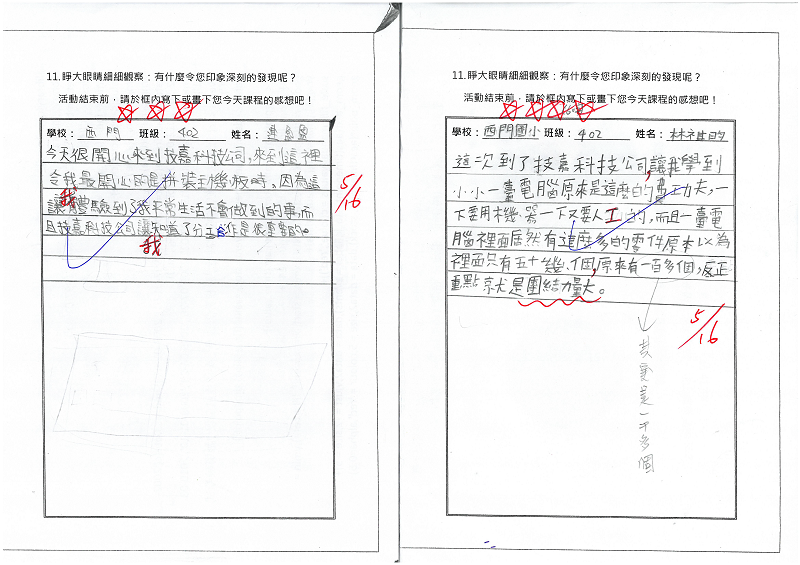 11.睜大眼睛細細觀察：有什麼令您印象深刻的發現呢？
活動結束前，請於框內寫下或畫下您今天課程的感想吧！
學校：西門 班級：402 姓名：
今天很開心來到技嘉科技公司，來到這裡
令我最開心的是拼裝到機板時，因為這
讓我體驗到了我平常生活不會做到的事，而
且技嘉科技公司讓我知道了分工合作是很重要的。
5/16
11.睜大眼睛細細觀察：有什麼令您印象深刻的發現呢？
活動結束前，請於框內寫下或畫下您今天課程的感想吧！
學校：西門國小 班級：402 姓名：林
這次到了技嘉科技公司，讓我學到
小小一臺電腦原來是這麼的費工夫，一
下要用機器一下又要人工的，而且一臺電
腦裡面居然有這麼多的零件原本以為
裡面只有五十幾個，原來有一百多個，反正
重點就是團結力量大。
5/16
其實是一千多個